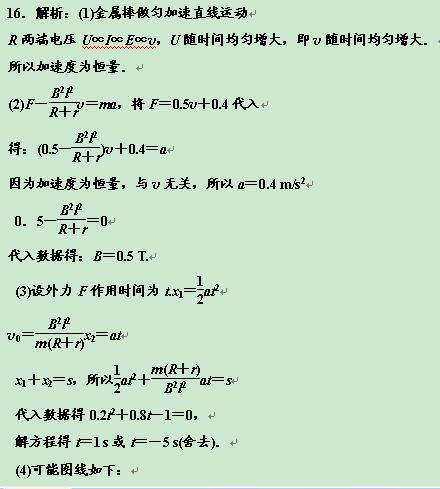 16．解析：(1)金属棒做匀加速直线运动
R 两端电压 U∝I∝E∝v，U 随时间均匀增大，即 v 随时间均匀增大．
所以加速度为恒量．
(2)F－B²l²/(R＋r)v＝ma，将 F＝0.5v＋0.4 代入
得：(0.5－B²l²/(R＋r))v＋0.4＝a
因为加速度为恒量，与 v 无关，所以 a＝0.4 m/s²
0．5－B²l²/(R＋r)＝0
代入数据得：B＝0.5 T.
(3)设外力 F 作用时间为 t.x₁＝1/2at²
v₀＝B²l²/m(R＋r)x₂＝at
x₁＋x₂＝s，所以1/2at²＋m(R＋r)/B²l²at＝s
代入数据得 0.2t²＋0.8t－1＝0，
解方程得 t＝1 s 或 t＝－5 s(舍去)．
(4)可能图线如下：